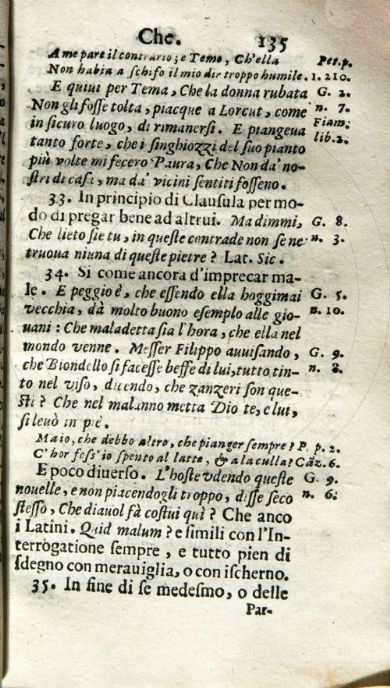 Che. 135
A me pare il contrario; e Temo, Ch'ella Pet. p.
Non habia a schifo il mio dir troppo humile. 1. 210.
E quiui per Tema, Che la donna rubata G. 2.
Non gli fosse tolta, piacque a Lorcut, come n. 7.
in sicuro luogo, di rimanersi. E piangeua Fiam.
tanto forte, che i singhiozzi del suo pianto lib. 2.
più volte mi fecero Paura, Che Non da' no-
stri di casa, ma da' vicini sentiti fossono.
33. In principio di Clausula per mo-
do di pregar bene ad altrui. Ma dimmi, G. 8.
Che lieto sie tu, in queste contrade non se ne n. 3.
truoua niuna di queste pietre? Lat. Sic.
34. Si come ancora d'imprecar ma-
le. E peggio è, che essendo ella hoggimai G. 5.
vecchia, dà molto buono esemplo alle gio- n. 10.
uani: Che maladetta sia l'hora, che ella nel
mondo venne. Messer Filippo auuisando, G. 9.
che Biondello si facesse beffe di lui, tutto tin- n. 8.
to nel viso, dicendo, che zanzeri son que-
sti? Che nel malanno metta Dio te, e lui,
si leuò in pè.
Maio, che debbo altro, che pianger sempre? P. p. 2.
C'hor foss'io spento al latte, & a la culla? Cãz. 6.
E poco diuerso. L'hoste vdendo queste G. 9.
nouelle, e non piacendogli troppo, disse seco n. 6.
stesso, Che diauol fà costui quì? Che anco
i Latini. Quid malum? e simili con l'In-
terrogatione sempre, e tutto pien di
sdegno con merauiglia, o con ischerno.
35. In fine di se medesmo, o delle
Par-